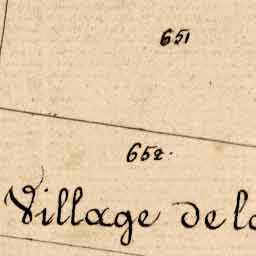 651
652.
Village de la